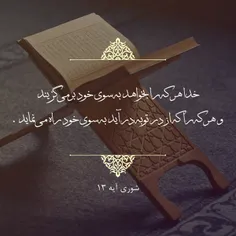 خدا هر که را بخواهد به سوی خود برمی‌گزیند
و هر که را که از در توبه درآید به سوی خود راه می‌نماید .
شوری آیه ۱۳